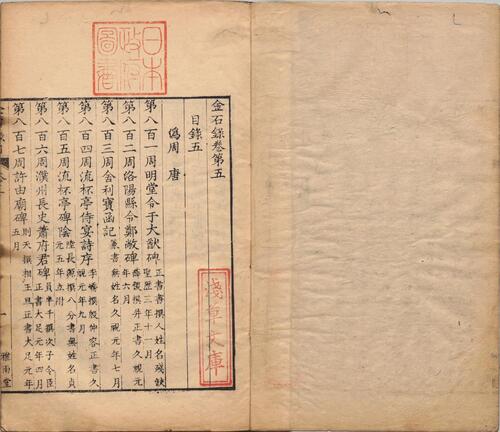 日本
政府
圖書
金石錄卷第五
目錄五
偽周 唐
淺草文庫
第八百一周明堂令于大猷碑 正書書撰人姓名殘缺
聖歷三年十一月
第八百二周洛陽縣令鄭敞碑 薛稷撰并正書久視元
年六月
第八百三周舍利寶函記 篆書無姓名久視元年七月
第八百四周流杯亭侍宴詩序 李嶠撰殷仲容正書久
視元年九月
第八百五周流杯亭碑陰 陸長源撰八分書無姓名貞
元五年立附
第八百六周濮州長史蕭府君碑 員半千撰次子令臣
正書大足元年四月
第八百七周許由廟碑 則天撰相王旦正書大足元年
五月
一
雅雨堂